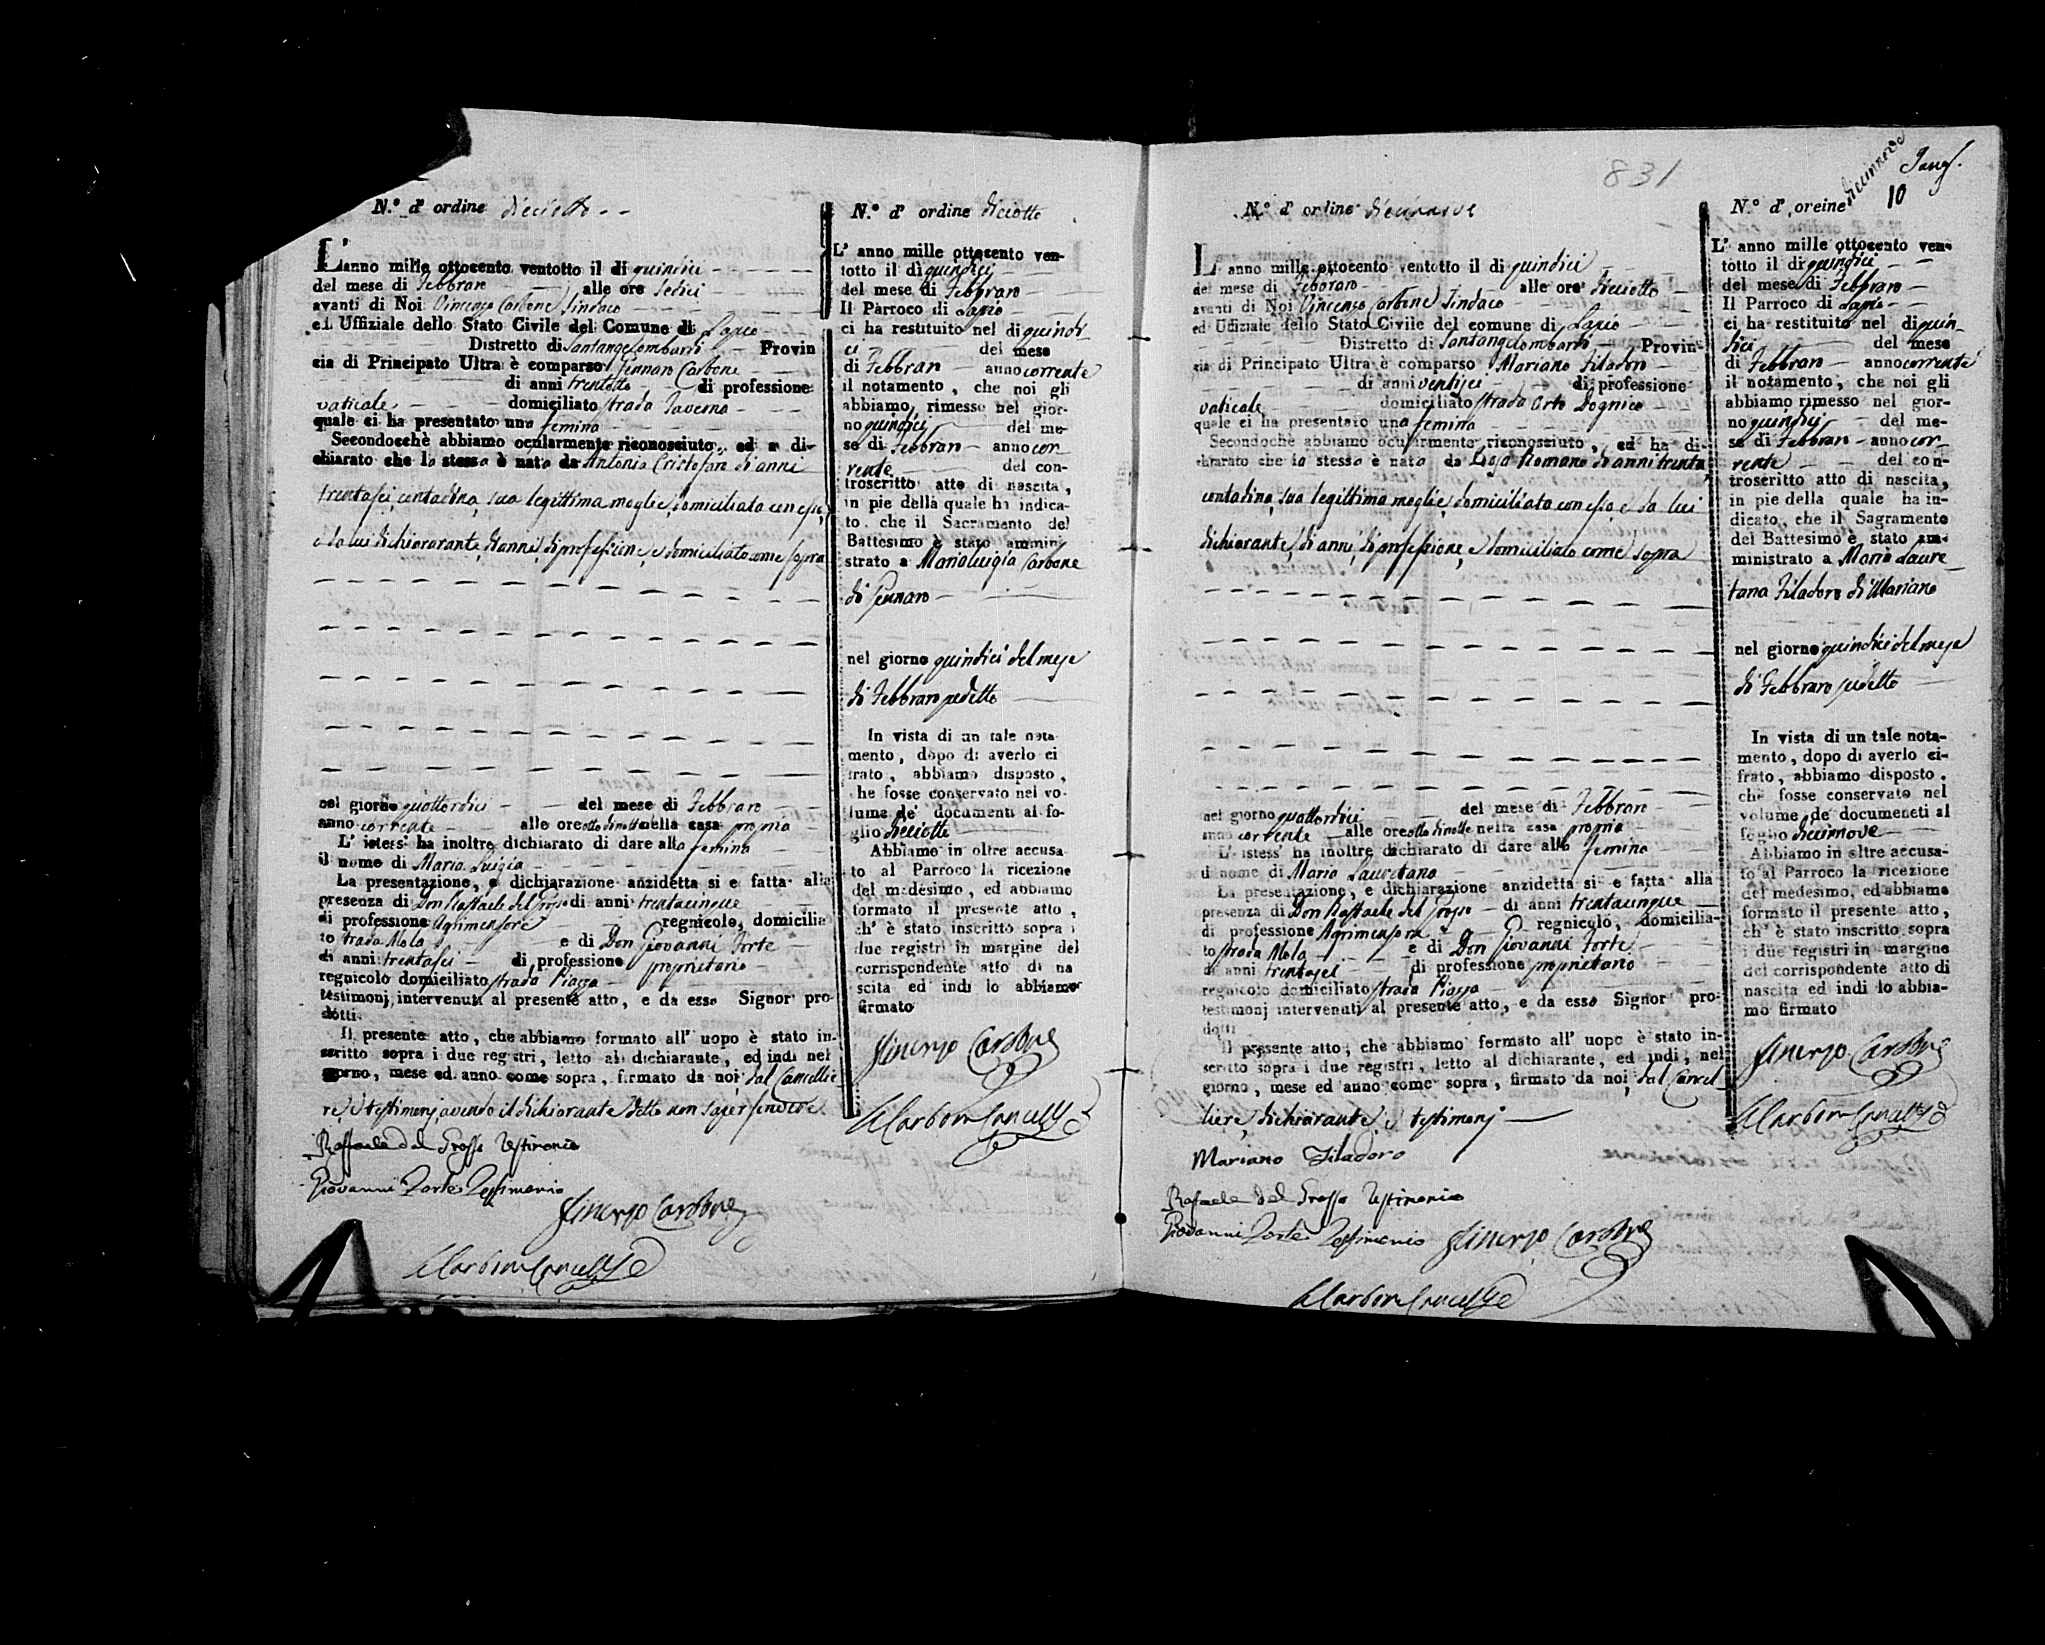 N.° d' ordine dieciotto
L' anno mille ottocento ventotto il di quindici
del mese di Febbraro alle ore sedici
avanti di Noi Vincenzo Carbone Sindaco
ed Uffiziale dello Stato Civile del Comune di Lapio
Distretto di Santangelombardi Provin
cia di Principato Ultra è comparso Gennaro Carbone
di anni trentotto di professione
vaticale domiciliato strada Taverna
quale ci ha presentato una femina
Secondocchè abbiamo ocularmente riconosciuto, ed a di-
chiarato che la stessa è nata da Antonia Cristofaro di anni
trentasei, contadina, sua legittima moglie, domiciliata con esso,
e da lui dichiarante, di anni, di professione, e domiciliato come sopra
nel giorno quattordici del mese di Febbraro
anno corrente alle ore otto di notte nella casa propria
L' istess' ha inoltre dichiarato di dare alla femina
il nome di Maria Luigia
La presentazione, e dichiarazione anzidetta si e fatta alla
presenza di Don Raffaele del Grosso di anni trentacinque
di professione Agrimensore regnicolo, domicilia
to strada Mola e di Don Giovanni Forte
di anni trentasei di professione proprietario
regnicolo domiciliato strada Piazza
testimonj intervenuti al presente atto, e da esso Signor pro-
dotti.
Il presente atto, che abbiamo formato all' uopo è stato in-
scritto sopra i due registri, letto al dichiarante, ed indi nel
giorno, mese ed anno come sopra, firmato da noi, dal Cancellie
re, e testimonj avendo il dichiarante detto non saper scrivere
Raffaele del Grosso Testimonio
Giovanni Forte Testimonio
Vincenzo Carbone
Carbone Cancelliere
N.° d' ordine dieciotto
L' anno mille ottocento ven-
totto il dì quindici
del mese di Febbraro
Il Parroco di Lapio
ci ha restituito nel di quindi
ci del mese
di Febbraro anno corrente
il notamento, che noi gli
abbiamo rimesso nel gior-
no quindici del me-
se di Febbraro anno cor-
rente del con-
troscritto atto di nascita,
in pie della quale ha indica-
to che il Sacramento del
Battesimo è stato ammini
strato a Maria Luigia Carbone
di Gennaro
nel giorno quindici del mese
di Febbraro sudetto
In vista di un tale nota-
mento, dopo di averlo ci
frato, abbiamo disposto,
che fosse conservato nel vo-
lume de' documenti al fo-
glio dieciotto
Abbiamo in oltre accusa-
to al Parroco la ricezione
del medesimo, ed abbiamo
formato il presente atto,
ch' è stato inscritto sopra i
due registri in margine del
corrispondente atto di na
scita ed indi lo abbiamo
firmato
Vincenzo Carbone
Carbone Cancelliere
831
N.° d' ordine diecinnove
L' anno mille ottocento ventotto il di quindici
del mese di Febbraro alle ore dieciotto
avanti di Noi Vincenzo Carbone Sindaco
ed Uffiziale dello Stato Civile del comune di Lapio
Distretto di Santangelombardi Provin-
cia di Principato Ultra è comparso Mariano Filadoro
di anni ventisei di professione
vaticale domiciliato strada Orto Dognico
quale ci ha presentato una femina
Secondochè abbiamo ocularmente riconosciuto, ed ha di-
chiarato che la stessa è nata da Rosa Romano di anni trenta
contadina, sua legittima moglie, domiciliata con esso, e da lui
dichiarante, di anni, di professione, e domiciliato come sopra
nel giorno quattordici del mese di Febbraro
anno corrente alle ore otto di notte nella casa propria
L' istess' ha inoltre dichiarato di dare alla femina
il nome di Maria Lauretana
La presentazione, e dichiarazione anzidetta si e fatta alla
presenza di Don Raffaele del Grosso di anni trentacinque
di professione Agrimensore regnicolo, domicilia-
to strada Mola e di Don Giovanni Forte
di anni trentasei di professione proprietario
regnicolo domiciliato strada Piazza
testimonj intervenuti al presente atto, e da esso Signor pro-
dotti
Il presente atto, che abbiamo formato all' uopo è stato in-
scritto sopra i due registri, letto al dichiarante, ed indi, nel
giorno, mese ed anno come sopra, firmato da noi, dal Cancel
liere, dichiarante, e testimonj
Mariano Filadoro
Raffaele del Grosso Testimonio
Giovanni Forte Testimonio Vincenzo Carbone
Carbone Cancelliere
10
N.° d' oreine diecinnove
L' anno mille ottocento ven-
totto il di quindici
del mese di Febbraro
Il Parroco di Lapio
ci ha restituito nel di quin-
dici del mese
di Febbraro anno corrente
il notamento, che noi gli
abbiamo rimesso nel gior-
no quindici del me-
se di Febbraro anno cor-
rente del con-
troscritto atto di nascita,
in pie della quale ha in-
dicato, che il Sagramento
del Battesimo è stato am-
ministrato a Maria Laure
tana Filadoro di Mariano
nel giorno quindici del mese
di Febbraro sudetto
In vista di un tale nota-
mento, dopo di averlo ci-
frato, abbiamo disposto,
che fosse conservato nel
volume de' documeneti al
foglio diecinnove
Abbiamo in oltre accusa-
to al Parroco la ricezione
del medesimo, ed abbiamo
formato il presente atto,
ch' è stato inscritto sopra
i due registri in margine
del corrispondente atto di
nascita ed indi lo abbia-
mo firmato
Vincenzo Carbone
Carbone Cancelliere